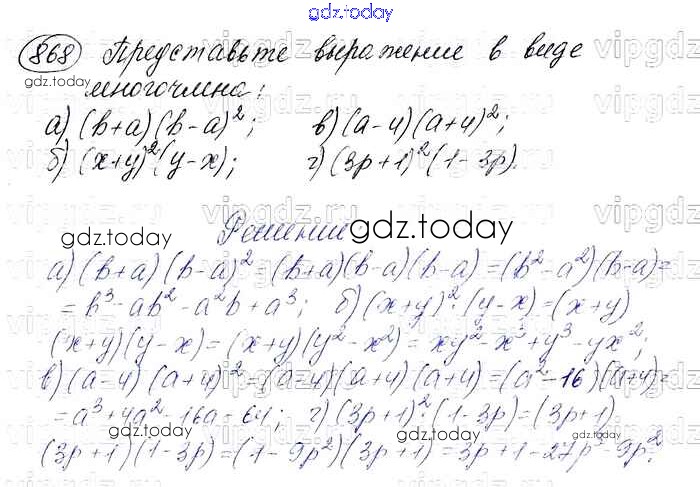 gdz.today
868 Представьте выражение в виде
многочлена:
а) (b+a)(b-a)²; в) (a-4)(a+4)²;
б) (x+y)²(y-x); г) (3p+1)²(1-3p).
Решение
а) (b+a)(b-a)² = (b+a)(b-a)(b-a) = (b²-a²)(b-a) =
= b³-ab²-a²b+a³; б) (x+y)²·(y-x) = (x+y)
(x+y)(y-x) = (x+y)(y²-x²) = xy²-x³+y³-yx²;
в) (a-4)(a+4)² = (a-4)(a+4)(a+4) = (a²-16)(a+4) =
= a³+4a²-16a-64; г) (3p+1)²·(1-3p) = (3p+1)
(3p+1)(1-3p) = (1-9p²)(3p+1) = 3p+1-27p³-9p².